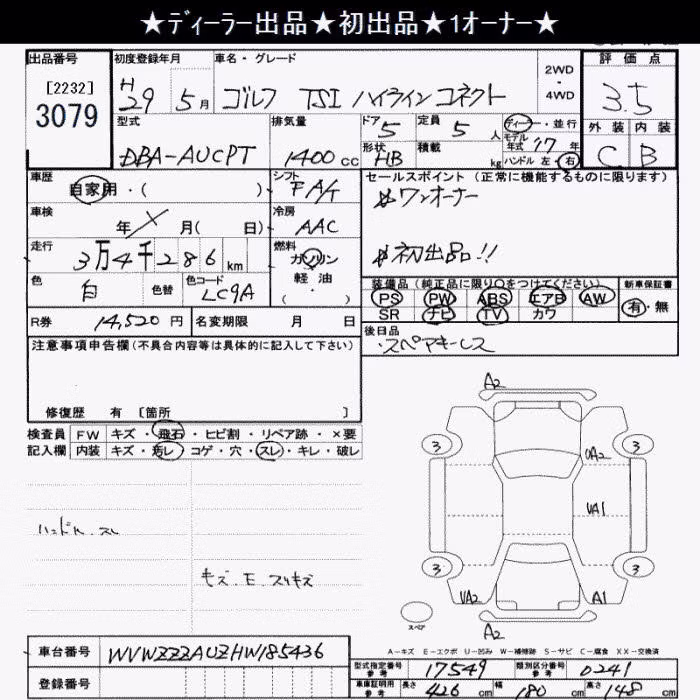 ★ディーラー出品★初出品★1オーナー★
出品番号 [2232] 3079
初度登録年月 H29 5月
車名・グレード ゴルフ TSI ハイライン コネクト
2WD・4WD
評価点 3.5
外装 C 内装 B
型式 DBA-AUCPT
排気量 1400cc
ドア 5 定員 5 人
形状 HB 積載 kg
ディーラー・並行
モデル年式 17 年
ハンドル 左・右
車歴 自家用・( )
シフト FA/T
車検 年 月( 日)
冷房 AAC
走行 3万4千286km
燃料 ガソリン 軽油 ・( )
色 白 色替 色コード LC9A
R券 14,520円 名変期限 月 日
セールスポイント (正常に機能するものに限ります)
ワンオーナー
初出品!!
装備品 (純正品に限り○をつけてください)
PS PW ABS エアB AW
SR ナビ TV カワ
新車保証書 有・無
後日品
・スペアキーレス
注意事項申告欄(不具合内容等は具体的に記入して下さい)
修復歴 有 〔箇所 〕
検査員記入欄
FW キズ・飛石・ヒビ割・リペア跡・×要
内装 キズ・汚レ・コゲ・穴・スレ・キレ・破レ
ハンドル スレ
キズ・E・スリキズ
A2
3 3
UA2
UA1
3 3
UA2 A1
A2
スペア
A-キズ E-エクボ U-凹み W-補修跡 S-サビ C-腐食 XX-交換済
車台番号 WVWZZZAUZHW185436
登録番号
型式指定番号 参考 17549 類別区分番号 参考 0241
車庫証明用 参考 長さ 426 cm 幅 180 cm 高さ 148 cm